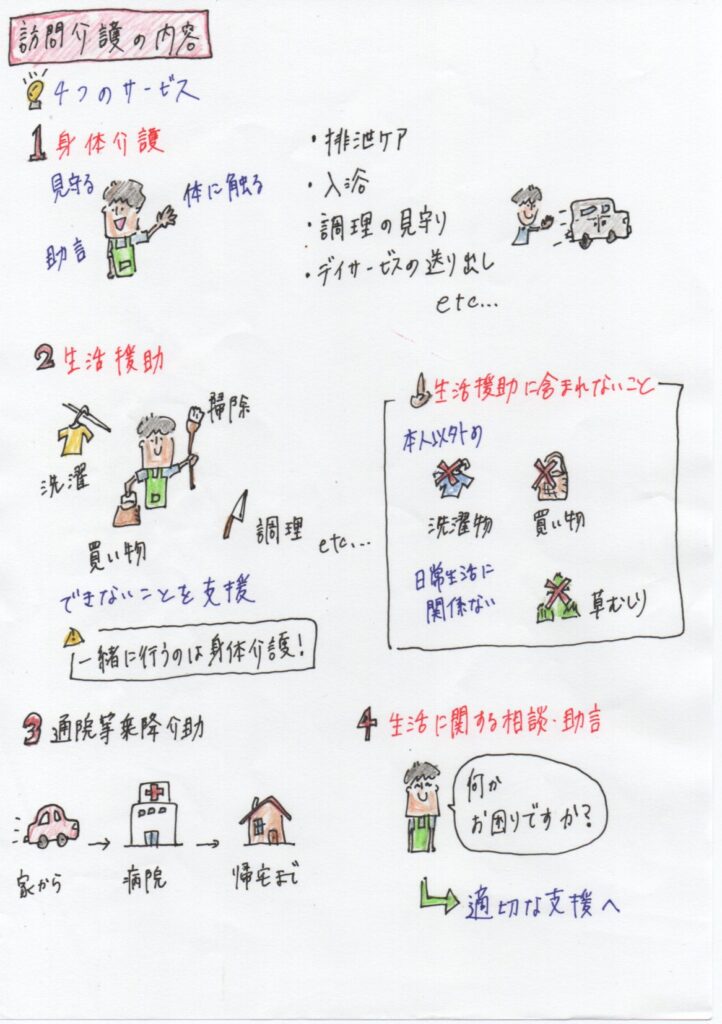 訪問介護の内容
4つのサービス
1 身体介護
見守る
体に触る
助言
・排泄ケア
・入浴
・調理の見守り
・デイサービスの送り出し
etc...
2 生活援助
掃除
洗濯
買い物
調理
etc...
できないことを支援
一緒に行うのは身体介護!
生活援助に含まれないこと
本人以外の
洗濯物
買い物
日常生活に
関係ない
草むしり
3 通院等乗降介助
家から
病院
帰宅まで
4 生活に関する相談・助言
何か
お困りですか?
適切な支援へ